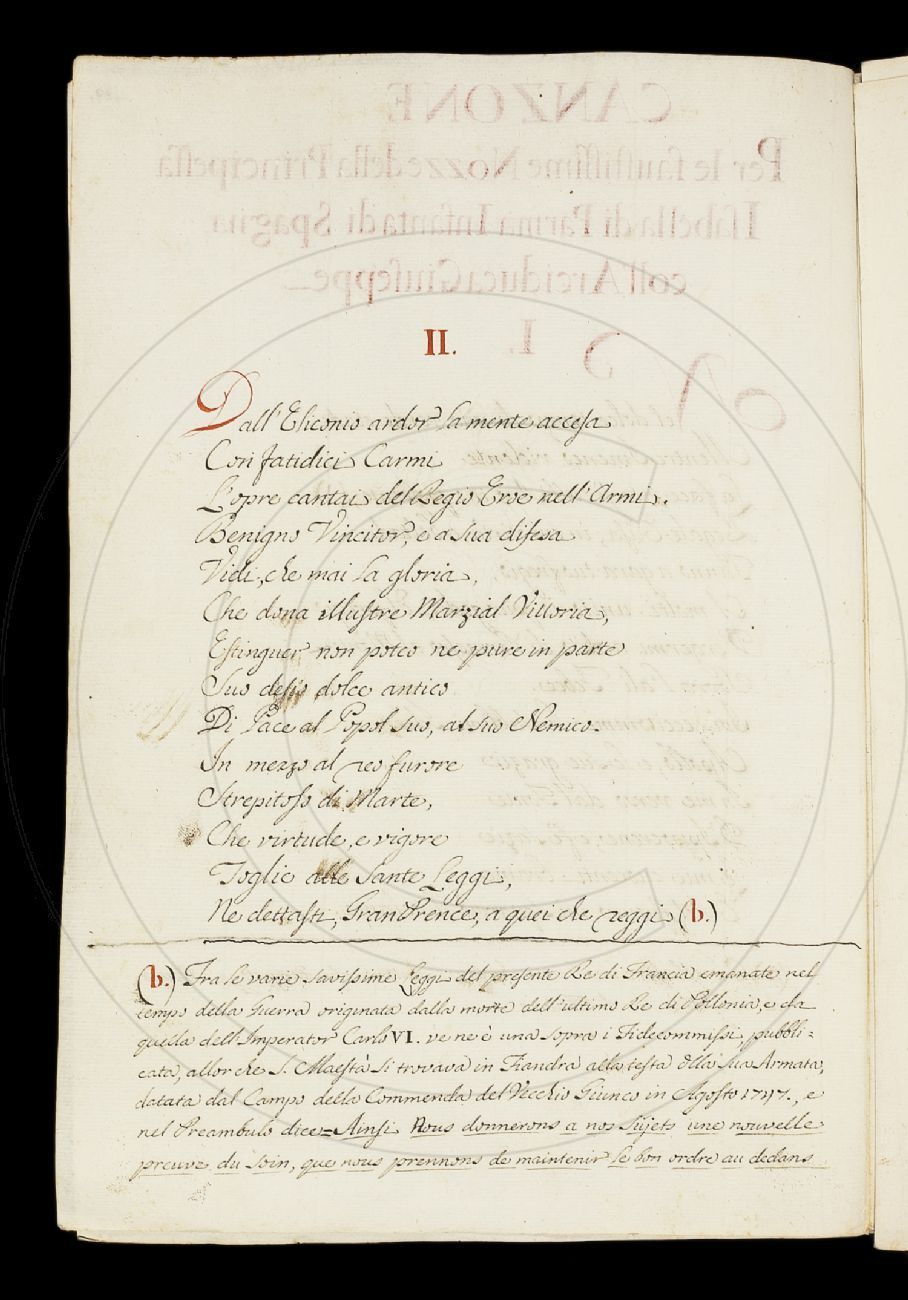 II.
Dall' Eliconio ardor la mente accesa
Con fatidici Carmi
L'opre cantai del Regio Eroe nell'Armi.
Benigno Vincitor, e a sua difesa
Vidi, che mai la gloria,
Che dona illustre Marzial Vittoria,
Estinguer non poteo ne pure in parte
Suo desio dolce antico
Di Pace al Popol suo, al suo Nemico.
In mezzo al reo furore
Strepitoso di Marte,
Che virtude, e vigore
Toglie alle Sante Leggi,
Ne dettasti, Gran Prence, a quei che reggi (b.)
(b.) Fra le varie savissime Leggi del presente Re di Francia emanate nel
tempo della Guerra originata dalla morte dell'ultimo Re di Pollonia, e da
quella dell'Imperator Carlo VI. ve ne è una sopra i Fidecommissi, pubbli=
cata, allor che S. Maestà si trovava in Fiandra alla testa della sua Armata,
datata dal Campo della Commenda del Vecchio Giunco in Agosto 1747., e
nel Preambulo dice = Ainsi Nous donnerons a nos Sujets une nouvelle
preuve du soin, que nous prennons de maintenir le bon ordre au dedans